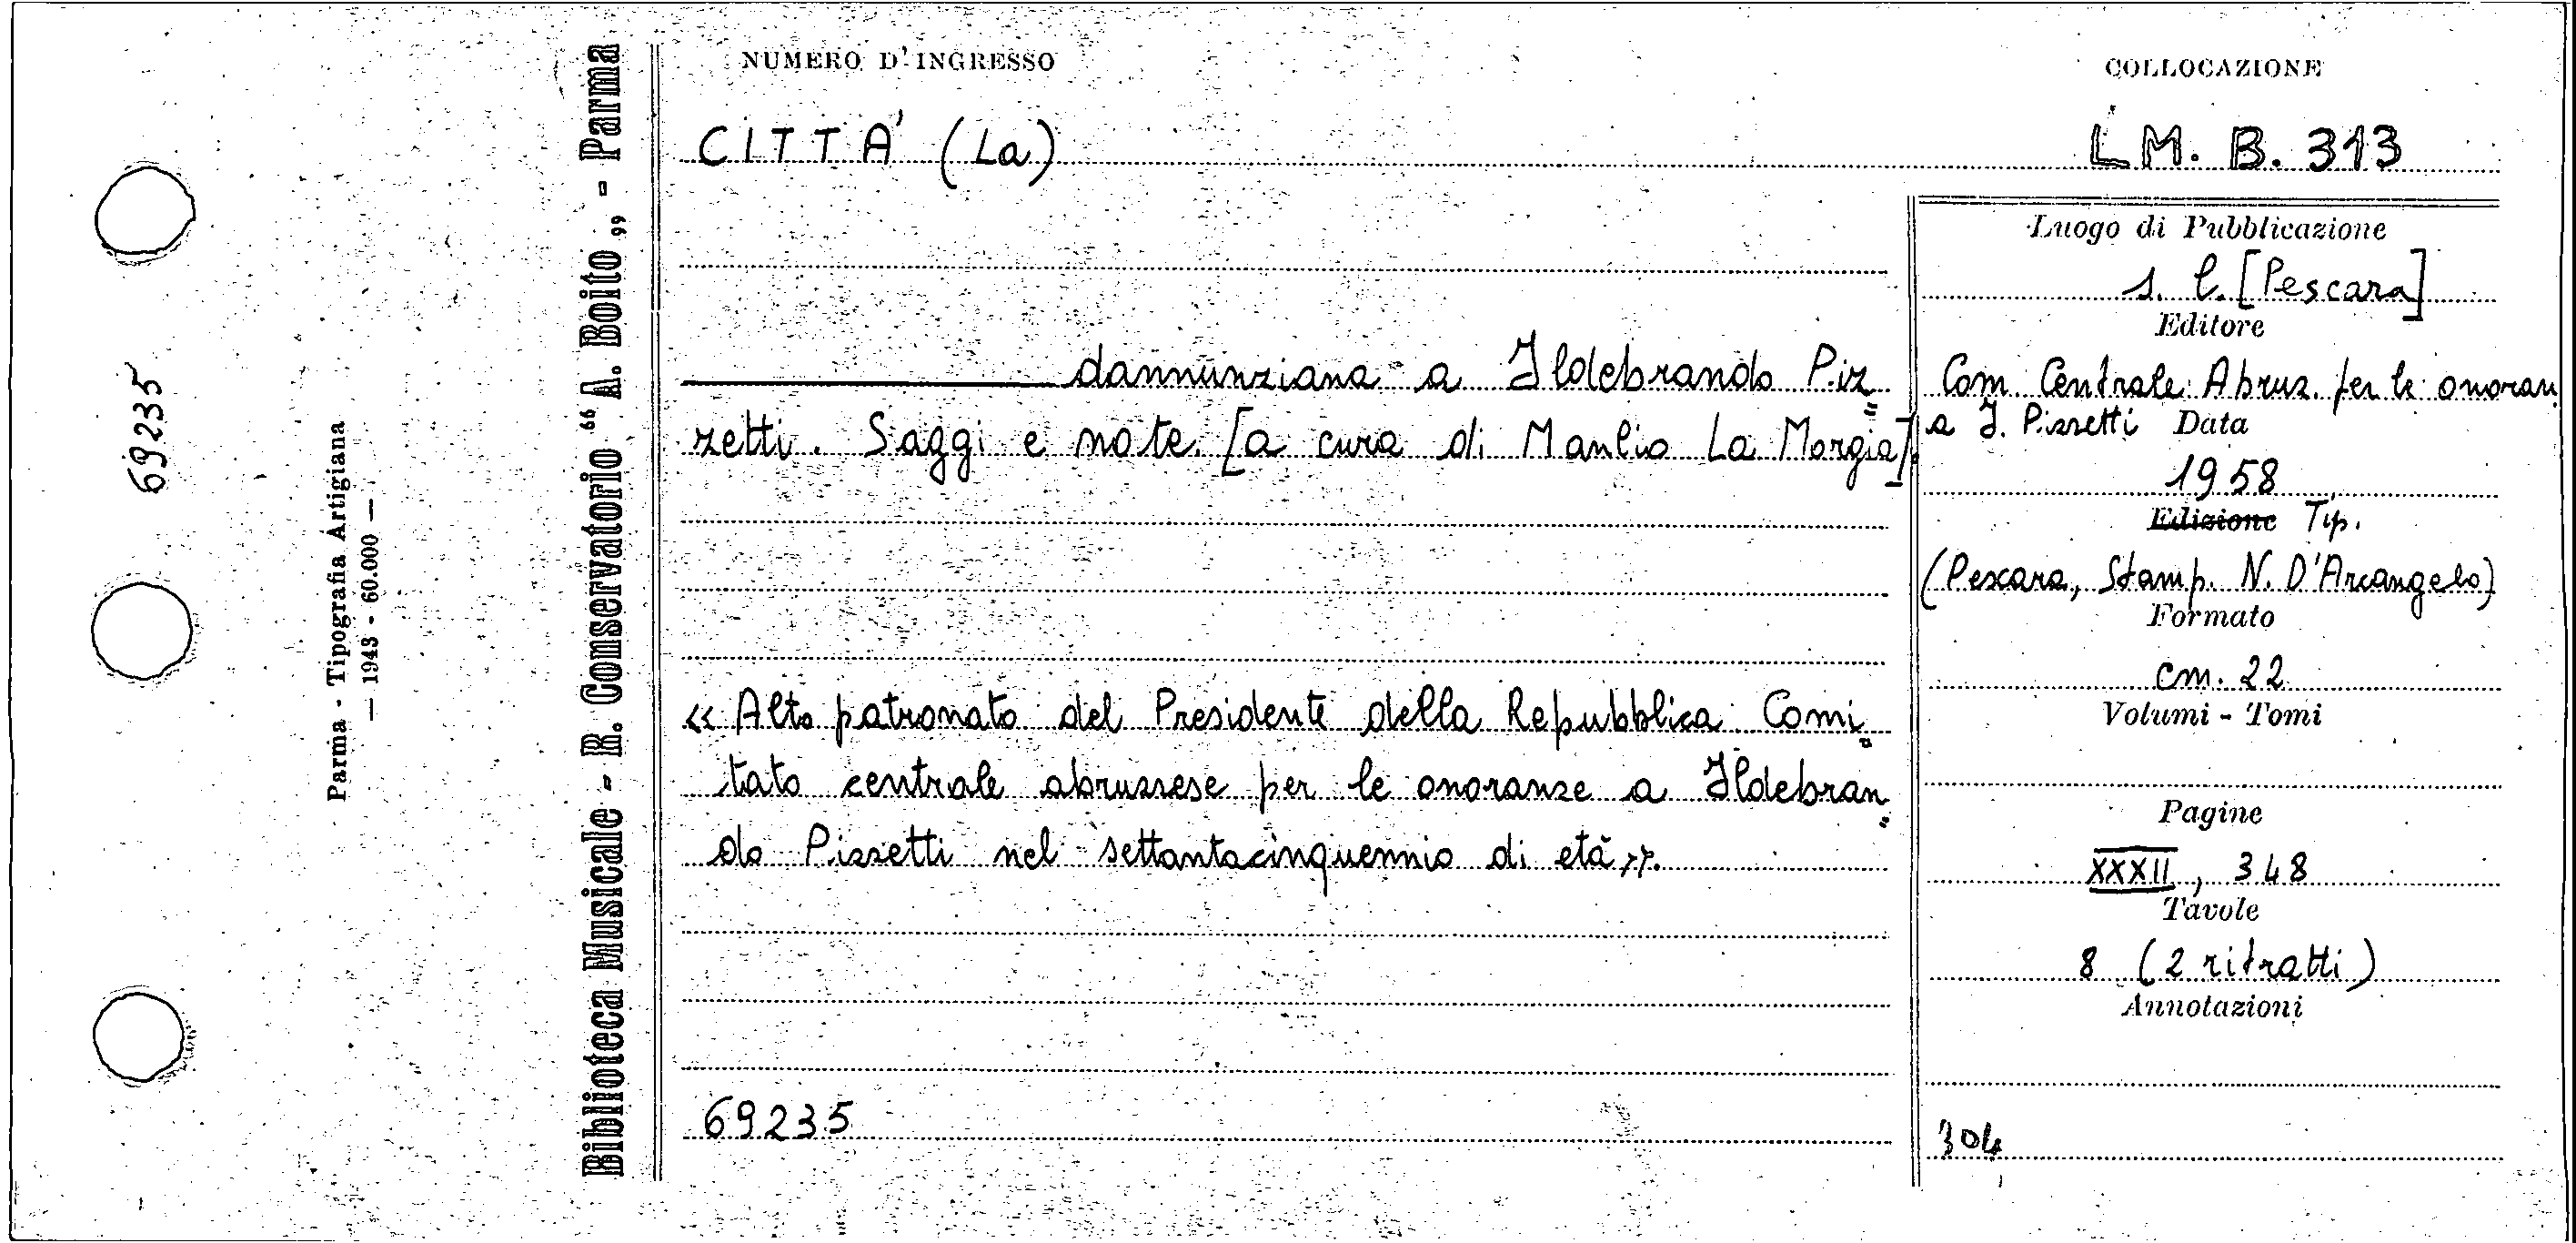 NUMERO D'INGRESSO
COLLOCAZIONE
CITTA' (La)
LM. B. 313
dannunziana a Ildebrando Piz=
zetti. Saggi e note. [a cura di Manlio La Morgia].
« Alto patronato del Presidente della Repubblica. Comi=
tato centrale abruzzese per le onoranze a Ildebran=
do Pizzetti nel settantacinquennio di età ».
69235
Luogo di Pubblicazione
s. l. [Pescara]
Editore
Com. Centrale Abruz. per le onoran
a I. Pizzetti Data
1958
Edizione Tip.
(Pescara, Stamp. N. D'Arcangelo)
Formato
cm. 22
Volumi - Tomi
Pagine
XXXII, 348
Tavole
8 (2 ritratti)
Annotazioni
304
Biblioteca Musicale - R. Conservatorio “A. Boito„ - Parma
Parma - Tipografia Artigiana
— 1943 - 60.000 —
69235